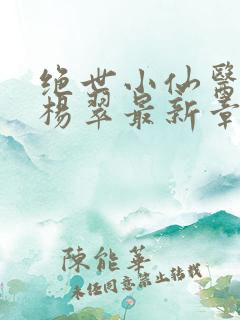 绝世小仙醫
楊翠最新章
陳能華
未经同意禁止转载